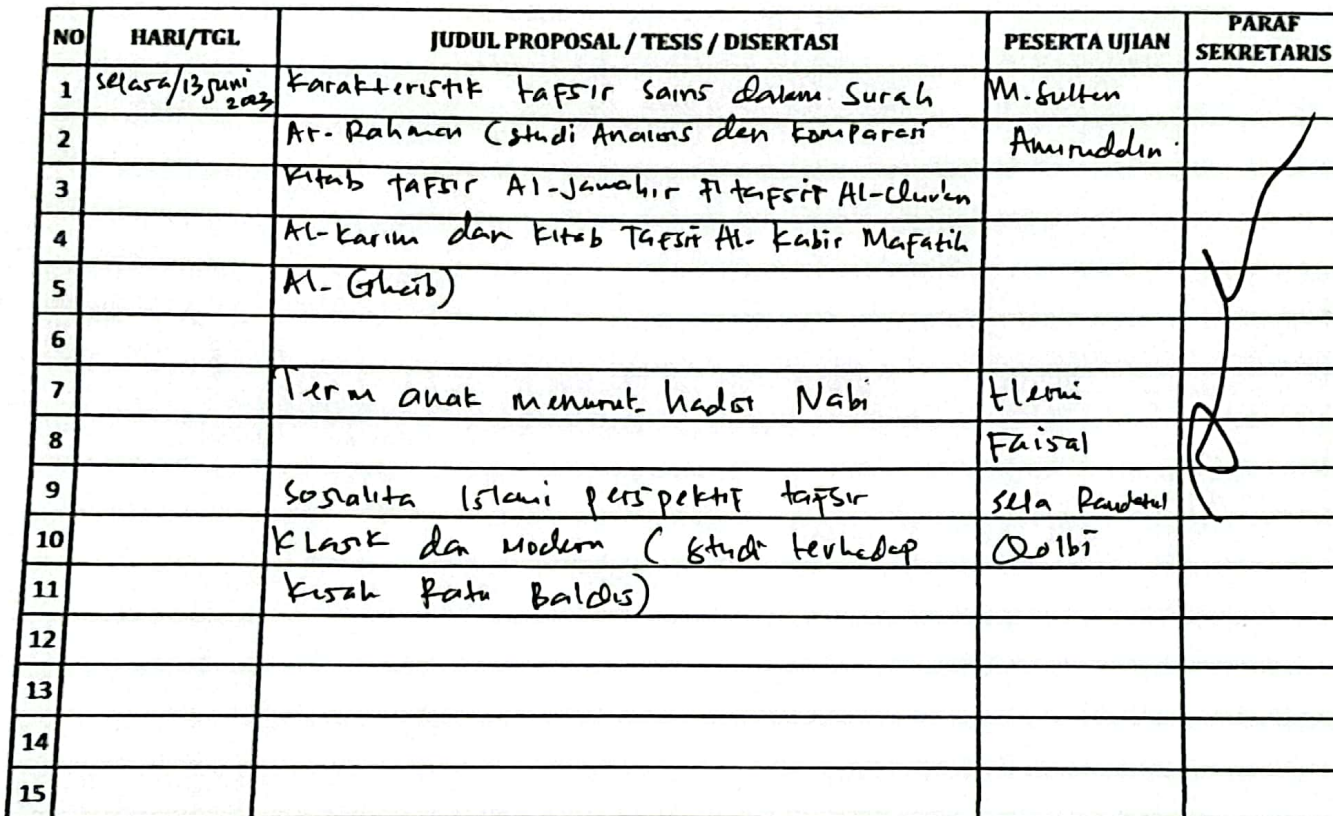 NO HARI/TGL JUDUL PROPOSAL / TESIS / DISERTASI PESERTA UJIAN PARAF SEKRETARIS
1 selasa/13 Juni 2023 Karakteristik tafsir sains dalam Surah M. Sultan
2 Ar-Rahman (studi Analisis dan komparasi Amiruddin
3 Kitab tafsir Al-Jawahir Fi tafsir Al-Qur'an
4 Al-Karim dan Kitab Tafsir Al-Kabir Mafatih
5 Al-Ghaib)
6
7 Term anak menurut hadist Nabi
8 Faisal
9 Sosialita Islami perspektif tafsir sela Raudatul
10 Klasik dan Modern (studi terhadap Qolbi
11 Kisah Ratu Balqis)
12
13
14
15